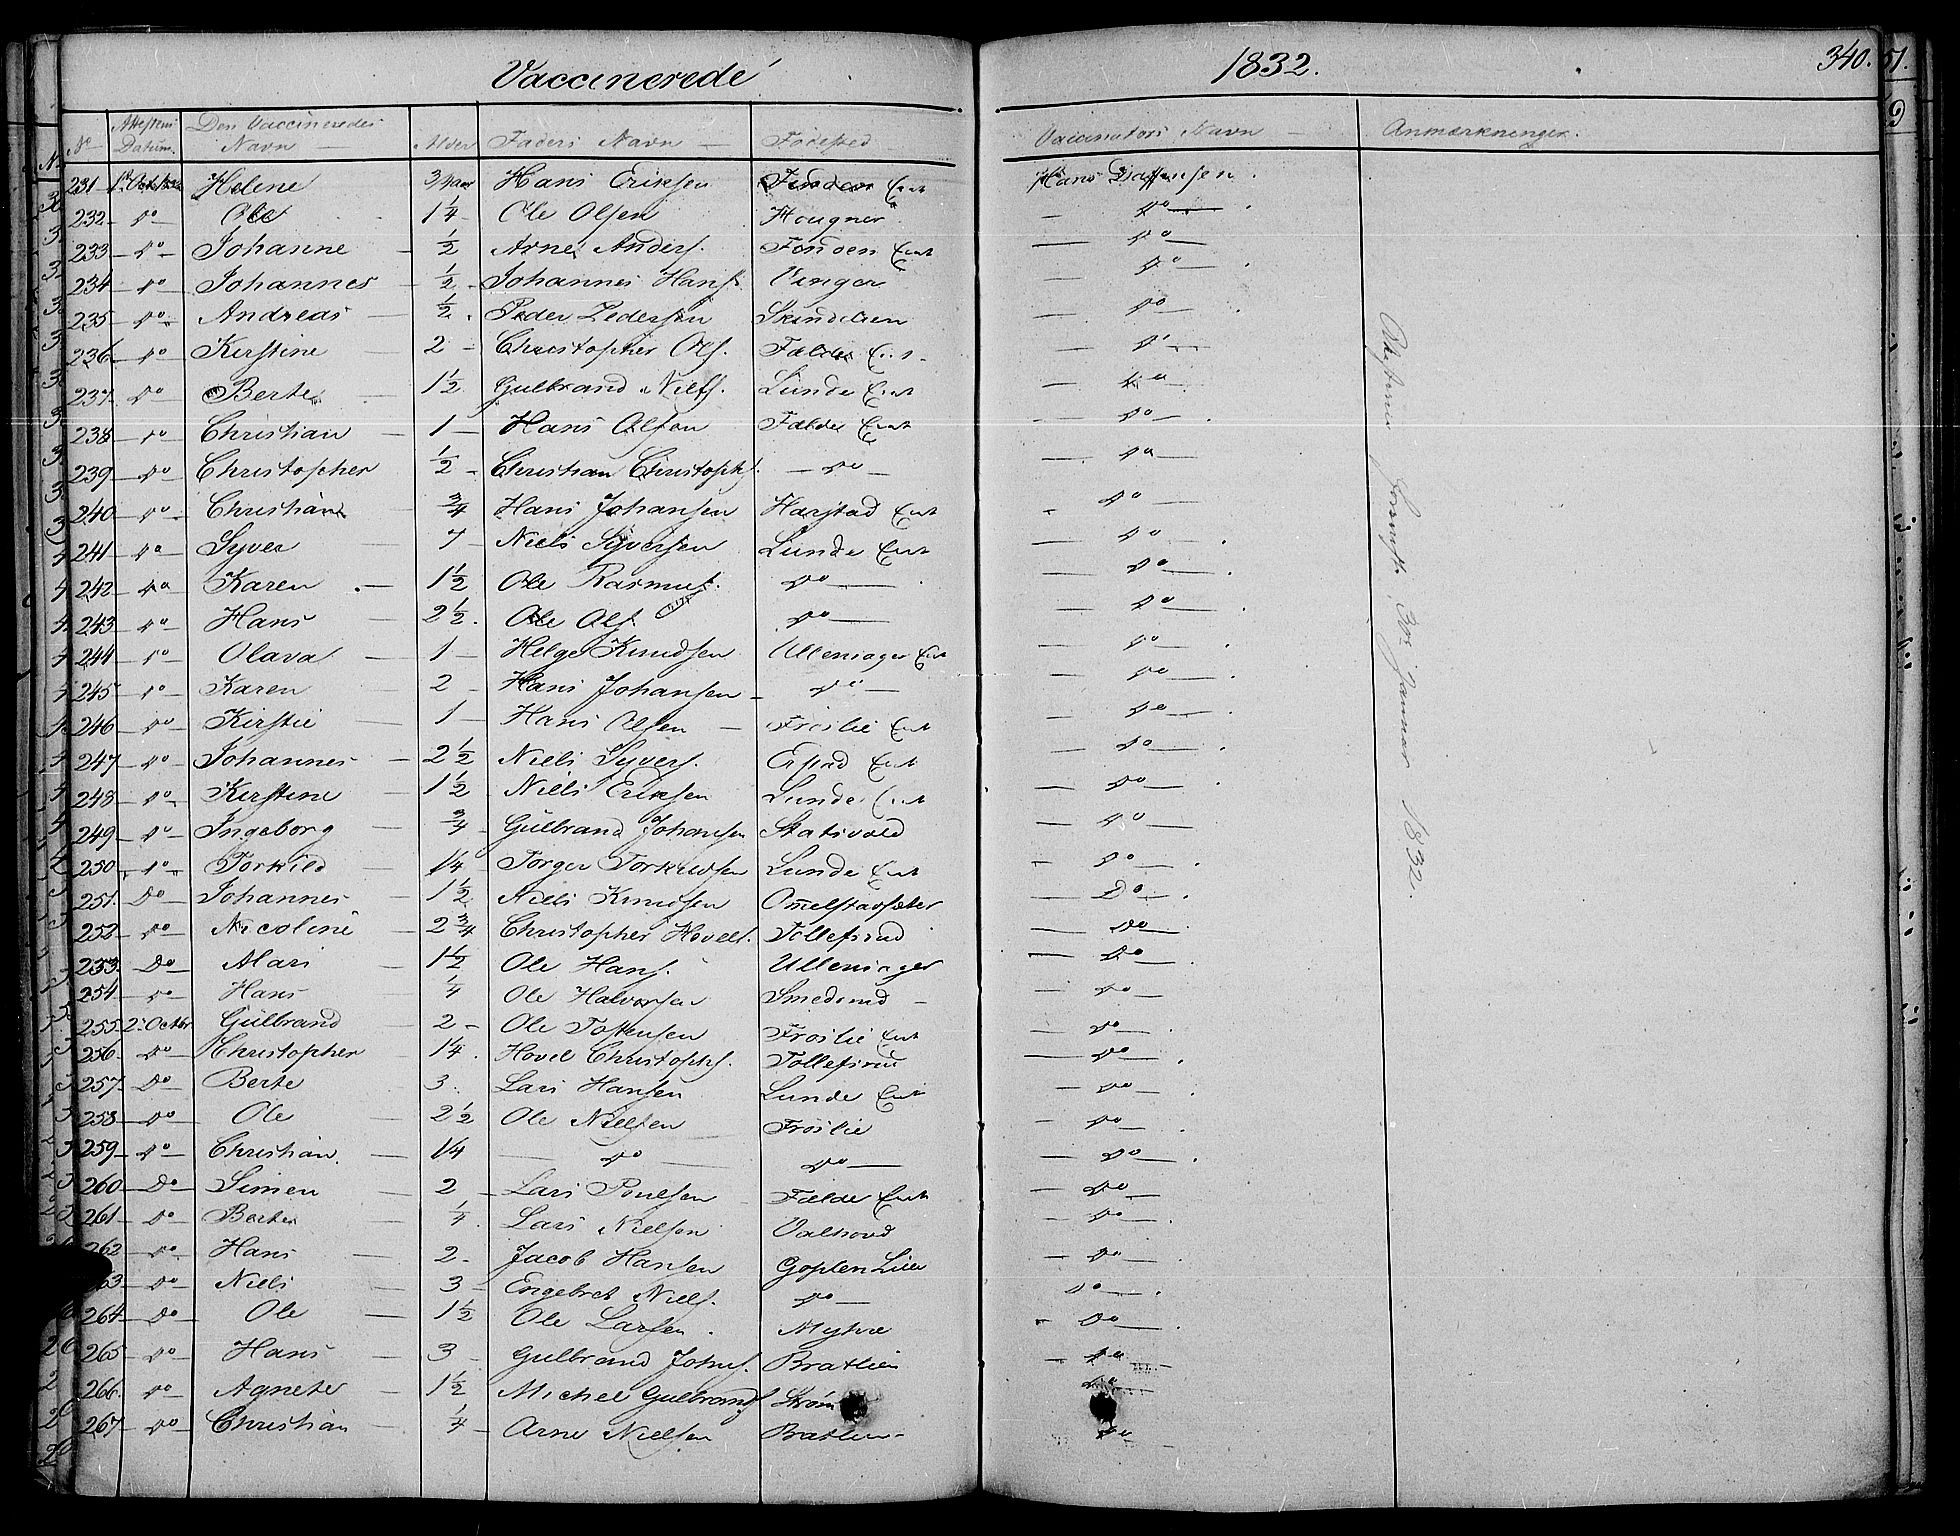 Vaccinerede 1832. 340.
No Attestens Datum. Den Vaccineredes Navn — Alder Faders Navn — Fødested Vaccinators Navn — Anmærkninger.
231 1st Octobr Helene 3/4 aar Hans Eriksen Fonden Ent Hans
232 — do — Ole 1 1/4 Ole Olsen Hougner — do —
233 — do — Johanne — 1/2 Arne Anders. Fonden Ent — do —
234 — do — Johannes — 1/2 — Johannes Hans. — do —
235 — do — Andreas — 1/2 . Peder Pedersen — do —
236 — do — Kirstine — 2 — Christopher Ols. Fælde — do —
237 — do — Berte — 1 1/2 Gulbrand Niels. Lunde Ent — do —
238 — do — Christian — 1 — Hans Olsen Fælde Ent — do —
239 — do — Christopher 1/2 — Christian Christoph. — do — — do —
240 — do — Christian 3/4 Hans Johansen Harstad Ent — do —
241 — do — Syver — 7 — Niels Syversen Lunde Ent — do —
242 — do — Karen — 1 1/2 Ole Rasmus. do — — do —
243 — do — Hans — 2 1/2 . Ole Ols. do — — do —
244 — do — Olava — 1 — Helge Knudsen Ullensager Ent — do —
245 — do — Karen — 2 — Hans Johansen — do — — do —
246 — do — Kirstie — 1 — Hans Olsen — Froslie Ent — do —
247 — do — Johannes — 2 1/2 Niels Syvers. Ent — do —
248 — do — Kirstine — 1 1/2 Niels Eriksen Lunde Ent — do —
249 — do — Ingeborg — 3/4 — Gulbrand Johansen — do —
250 — do — Torkild — 1/4 Torger Torkildsen Lunde Ent — do —
251. Do — Johannes — 1 1/2 Niels Knudsen Omelstadsæter — Do — .
252 — do — Nicoline — 2 3/4 Christopher Hovels. Tollefsrud — do — .
253. Do — Mari — 1 1/2 Ole Hans. Ullensager — Do —
254 — do — Hans — 1/4 Ole Halvorsen Smedsrud — — do —
255 — 2. Octbr Gulbrand — 2 — Ole Tostensen Froslie Ent — do —
256 — do — Christopher — 1/4 . Hovel Christophs. Tollefsrud — do — .
257 — Do — Berte — 3. Lars Hansen Lunde Ent — do —
258 — do — Ole — 2 1/2 Ole Nielsen Froslie — do —
259 — do — Christian. — 1/4 — do — do — — do — .
260 — Do — Simen — 2 — Lars Poulsen Fælde Ent — do —
261 — Do — Berte — 1/4 . Lars Nielsen Valsrud — do —
262 — do — Hans — 2 — Jacob Hansen Goplen Lier — do —
263 — do — Niels — 3 — Engebret Niels. do — do —
264 — Do — Ole — 1 1/2 Ole Larsen . Mytvæ — Do —
265 — do — Hans — 3 — Gulbrand Johns. Bratlien — do —
266. — do — Agnete — 1 1/2 Michel Gulbrands. Strøm — do
267 — do — Christian — 1/4 — Arne Nielsen Bratlien — do
Januar 1832.